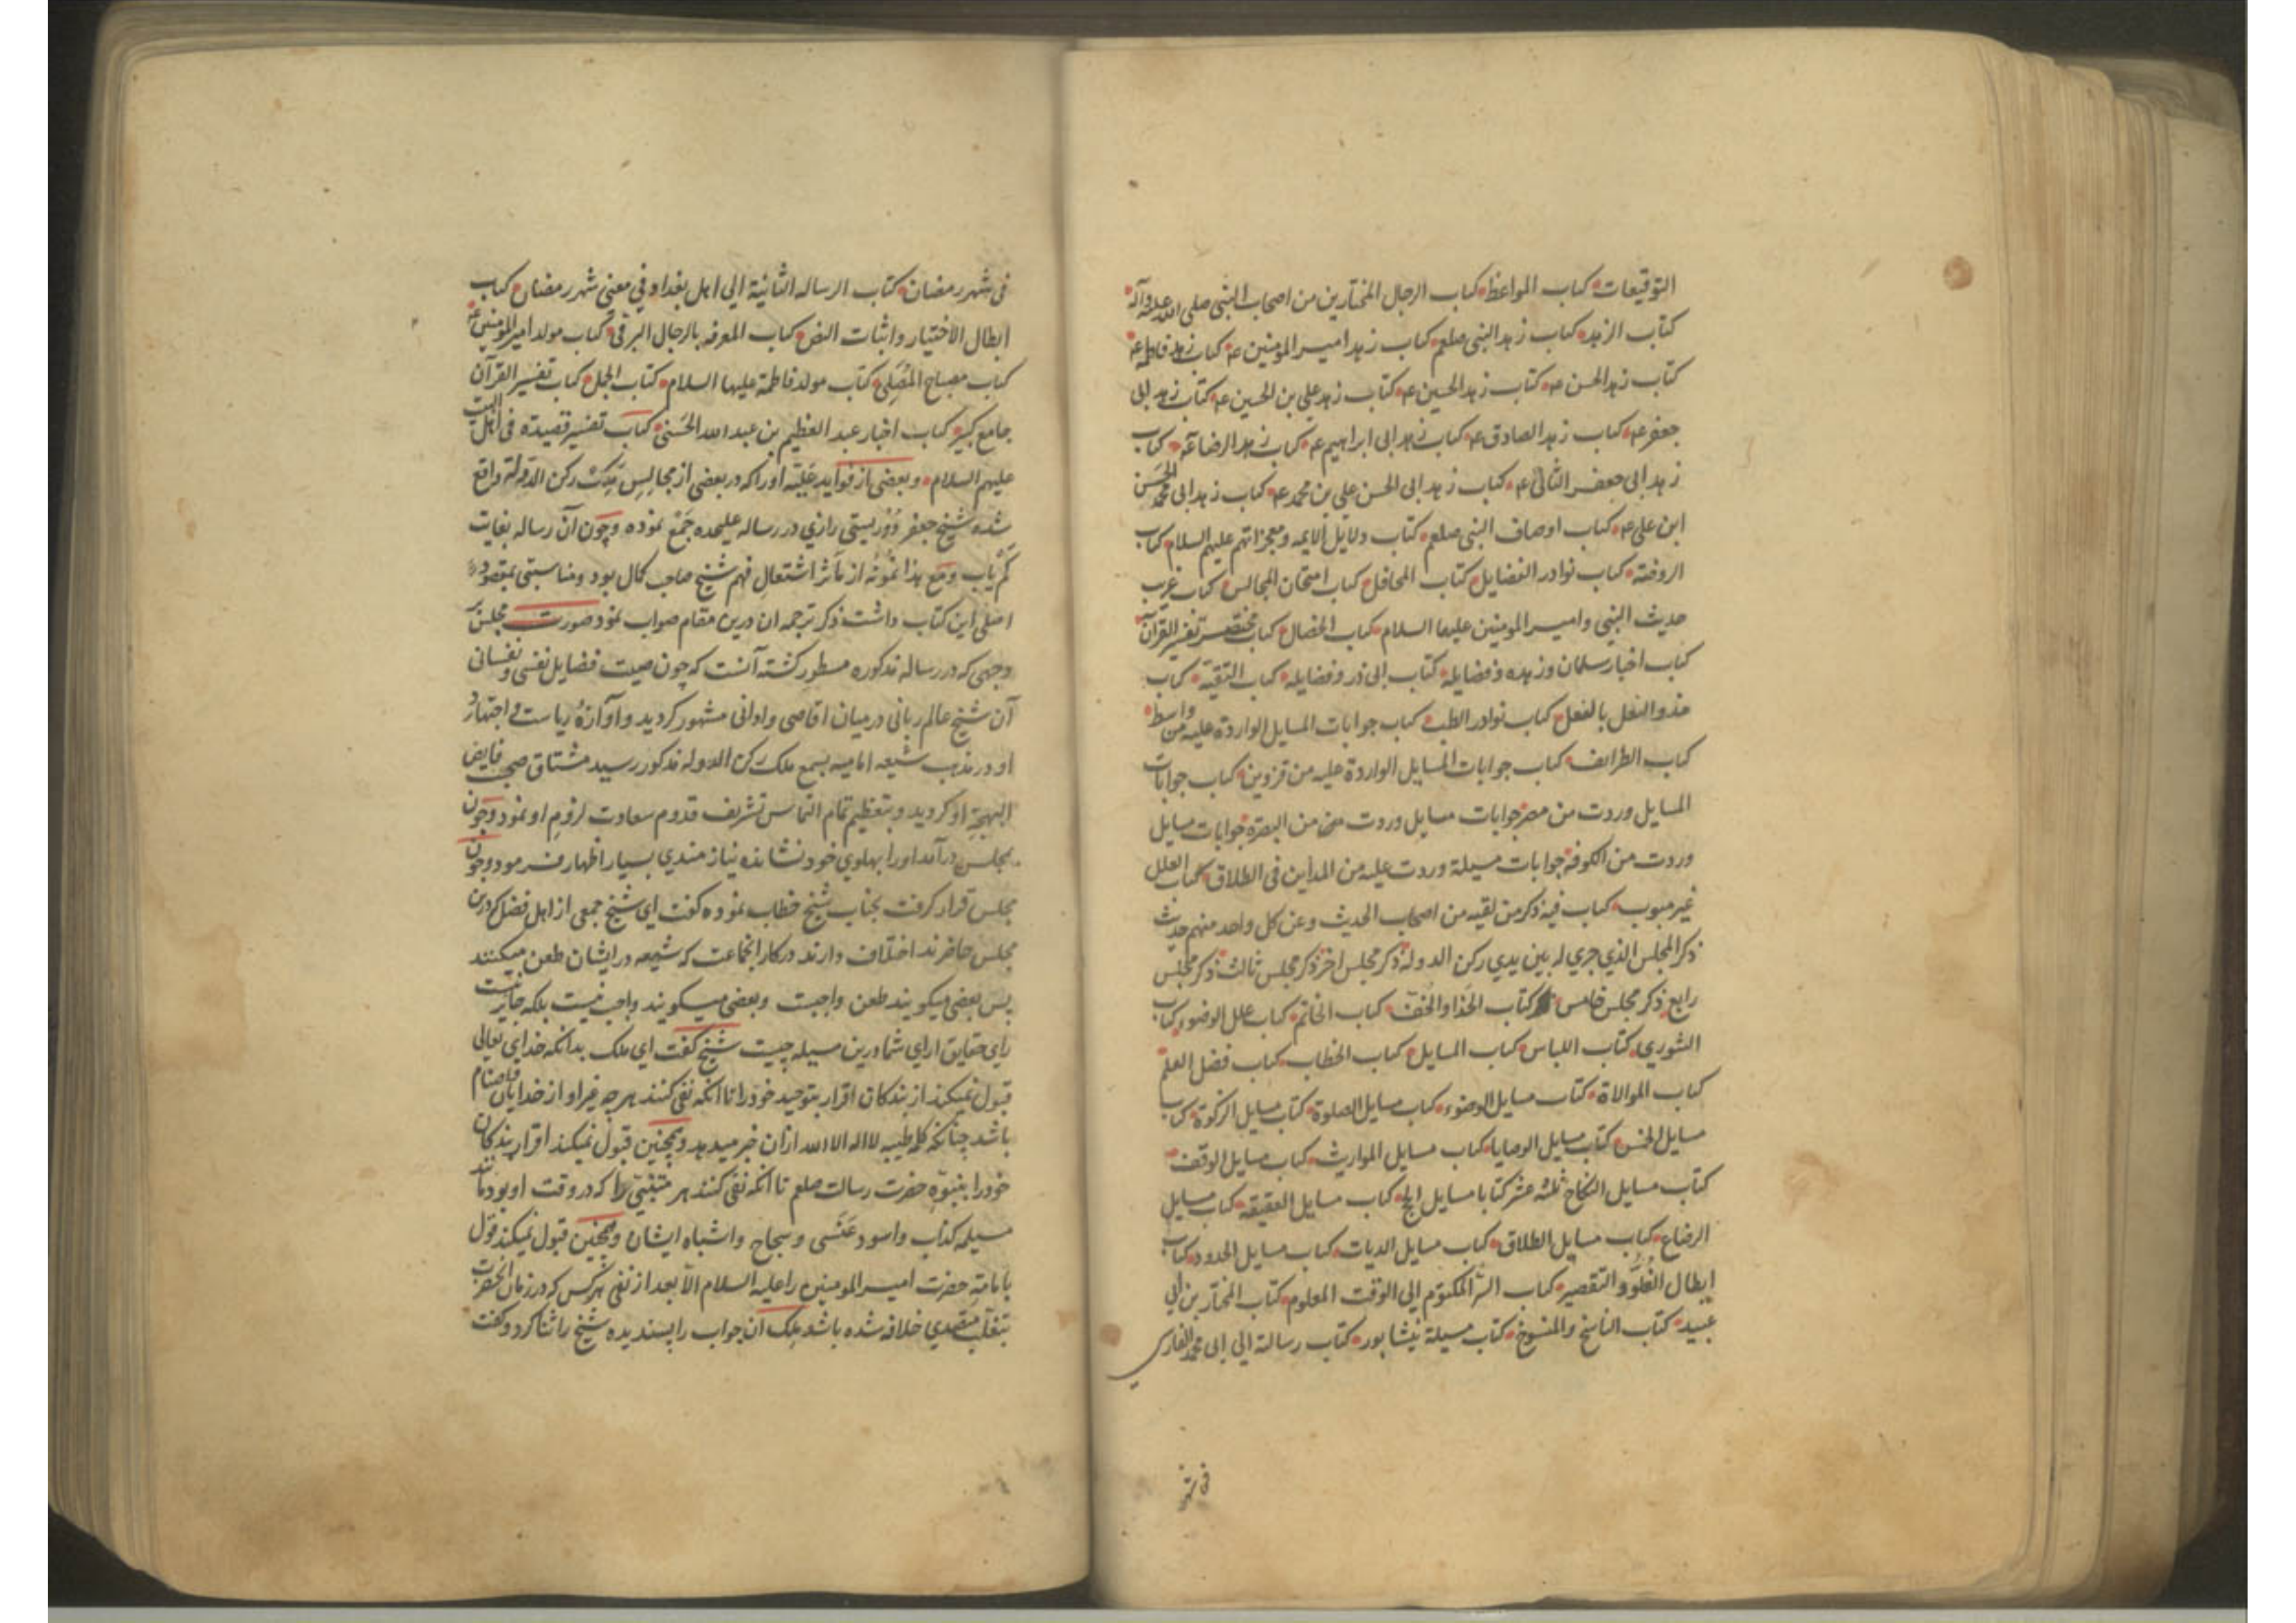 التوقیعات کتاب المواعظ کتاب الرجال المختارین من اصحاب النبی صلی الله علیه وآله
کتاب الزهد کتاب زهد النبی صلعم کتاب زهد امیر المومنین عه کتاب زهد فاطمه عه
کتاب زهد الحسن عه کتاب زهد الحسین عه کتاب زهد علی بن الحسین عه کتاب زهد ابی
جعفر عه کتاب زهد الصادق عه کتاب زهد ابی ابراهیم عه کتاب زهد الرضا عه کتاب
زهد ابی جعفر الثانی عه کتاب زهد ابی الحسن علی بن محمد عه کتاب زهد ابی محمد الحسن
ابن علی عه کتاب اوصاف النبی صلعم کتاب دلایل الایمه ومعجزاتهم علیهم السلام کتاب
الروضة کتاب نوادر الفضایل کتاب المحافل کتاب امتحان المجالس کتاب غریب
حدیث النبی وامیر المومنین علیهما السلام کتاب الخصال کتاب مختصر تفسیر القرآن
کتاب اخبار سلمان وزهده وفضایله کتاب ابی ذر وفضایله کتاب التقیة کتاب
حذو النعل بالنعل کتاب نوادر الطب کتاب جوابات المسایل الواردة علیه من واسط
کتاب الطرائف کتاب جوابات المسایل الواردة علیه من قزوین کتاب جوابات
المسایل وردت من مصر جوابات مسایل وردت من البصرة جوابات مسایل
وردت من الکوفة جوابات مسیلة وردت علیه من المداین فی الطلاق کتاب العلل
غیر مبوب کتاب فیه ذکر من لقیه من اصحاب الحدیث وعن کل واحد منهم حدیث
ذکر المجلس الذی جری له بین یدی رکن الدولة ذکر مجلس اخر ذکر مجلس ثالث ذکر مجلس
رابع ذکر مجلس خامس کتاب الحذا والخف کتاب الخاتم کتاب علل الوضوء کتاب
الشوری کتاب اللباس کتاب المسایل کتاب الخطاب کتاب فضل العلم
کتاب الموالاة کتاب مسایل الوضوء کتاب مسایل الصلوة کتاب مسایل الزکوة کتاب
مسایل الخمس کتاب مسایل الوصایا کتاب مسایل المواریث کتاب مسایل الوقف
کتاب مسایل النکاح ثلثه عشر کتابا مسایل الحج کتاب مسایل العقیقه کتاب مسایل
الرضاع کتاب مسایل الطلاق کتاب مسایل الدیات کتاب مسایل الحدود کتاب
ابطال الغلو والتقصیر کتاب السر المکتوم الی الوقت المعلوم کتاب المختار بن ابی
عبید کتاب الناسخ والمنسوخ کتاب مسیلة نیشابور کتاب رسالة الی ابی محمد الفارسی
فی شهر
فی شهر رمضان کتاب الرساله الثانیة الی اهل بغداد فی معنی شهر رمضان کتاب
ابطال الاختیار واثبات النص کتاب المعرفه بالرجال البرقی کتاب مولد امیر المومنین عه
کتاب مصباح المصلی کتاب مولد فاطمة علیها السلام کتاب الجمل کتاب تفسیر القرآن
جامع کبیر کتاب اخبار عبد العظیم بن عبد الله الحسنی کتاب تفسیر قصیده فی اهل البیت
علیهم السلام وبعضی از فواید علیّه اورا که در بعضی از مجالس ملک رکن الدوله واقع
شده شیخ جعفر دوریستی رازی در رساله علیحده جمع نموده وچون آن رساله بغایت
کم یاب ومع هذا نمونه از مآثر اشتعال فهم شیخ صاحب کمال بود ومناسبتی بمقصود
اصلی این کتاب داشت ذکر ترجمه ان درین مقام صواب نمود صورت مجلس
وجهی که در رساله مذکوره مسطور کشته آنست که چون صیت فضایل نفسی ونفسانی
آن شیخ عالم ربانی در میان اقاصی وادانی مشهور کردید واوآزهٔ ریاست واجتهاد
او در مذهب شیعه امامیه بسمع ملک رکن الدوله مذکور رسید مشتاق صحبت فایض
البهجة او کردید وبتعظیم تمام التماس تشریف قدوم سعادت لزوم او نمود وچون
بمجلس درآمد اورا بپهلوی خود نشانده نیازمندی بسیار اظهار فرمود وچون
مجلس قرار کرفت بجناب شیخ خطاب نموده کفت ای شیخ جمعی از اهل فضل که درین
مجلس حاضرند اختلاف دارند در کار انجماعت که شیعه در ایشان طعن میکنند
پس بعضی میکویند طعن واجبست وبعضی میکویند واجب نیست بلکه جایز نیست
رای حقایق ارای شما درین مسیله چیست شیخ کفت ای ملک بدانکه خدای تعالی
قبول نمیکند از بندکان اقرار بتوحید خود را تا انکه نفی کنند هر چه غیر او از خدایان واصنام
باشد چنانکه کلمه طیبه لا اله الا الله ازان خبر میدهد وهمچنین قبول نمیکند اقرار بندکان
خودرا بنبوّة حضرت رسالت صلعم تا انکه نفی کنند هر متنبی را که در وقت او بودند مانند
مسیلمه کذاب واسود عنسی وسجاح واشباه ایشان وهمچنین قبول نمیکند قول
بامامة حضرت امیر المومنین را علیه السلام الا بعد از نفی هر کس که در زمان انحضرت
بتغلب متصدی خلافه شده باشد ملک ان جواب را پسندیده شیخ را ثنا کرد وکفت